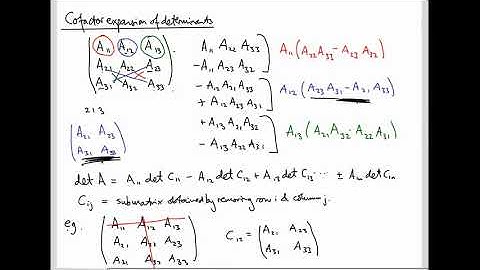 Cofactor expansion of determinants
A₁₁ A₁₂ A₁₃
A₂₁ A₂₂ A₂₃
A₃₁ A₃₂ A₃₃
213
A₂₁ A₂₃
A₃₁ A₃₃
A₁₁ A₂₂ A₃₃
-A₁₁ A₂₃ A₃₂
-A₁₂ A₂₁ A₃₃
+ A₁₂ A₂₃ A₃₁
+A₁₃ A₂₁ A₃₂
- A₁₃ A₂₂ A₃₁
A₁₁ (A₂₂ A₃₃ - A₂₃ A₃₂)
A₁₂ (A₂₃ A₃₁ - A₂₁ A₃₃)
A₁₃ (A₂₁ A₃₂ - A₂₂ A₃₁)
det A = A₁₁ det C₁₁ - A₁₂ det C₁₂ + A₁₃ det C₁₃ ... ± A₁ₙ det C₁ₙ
Cᵢⱼ = submatrix obtained by removing row i & column j.
eg.
A₁₁ A₁₂ A₁₃
A₂₁ A₂₂ A₂₃
A₃₁ A₃₂ A₃₃
C₁₂ = (A₂₁ A₂₃
A₃₁ A₃₃)